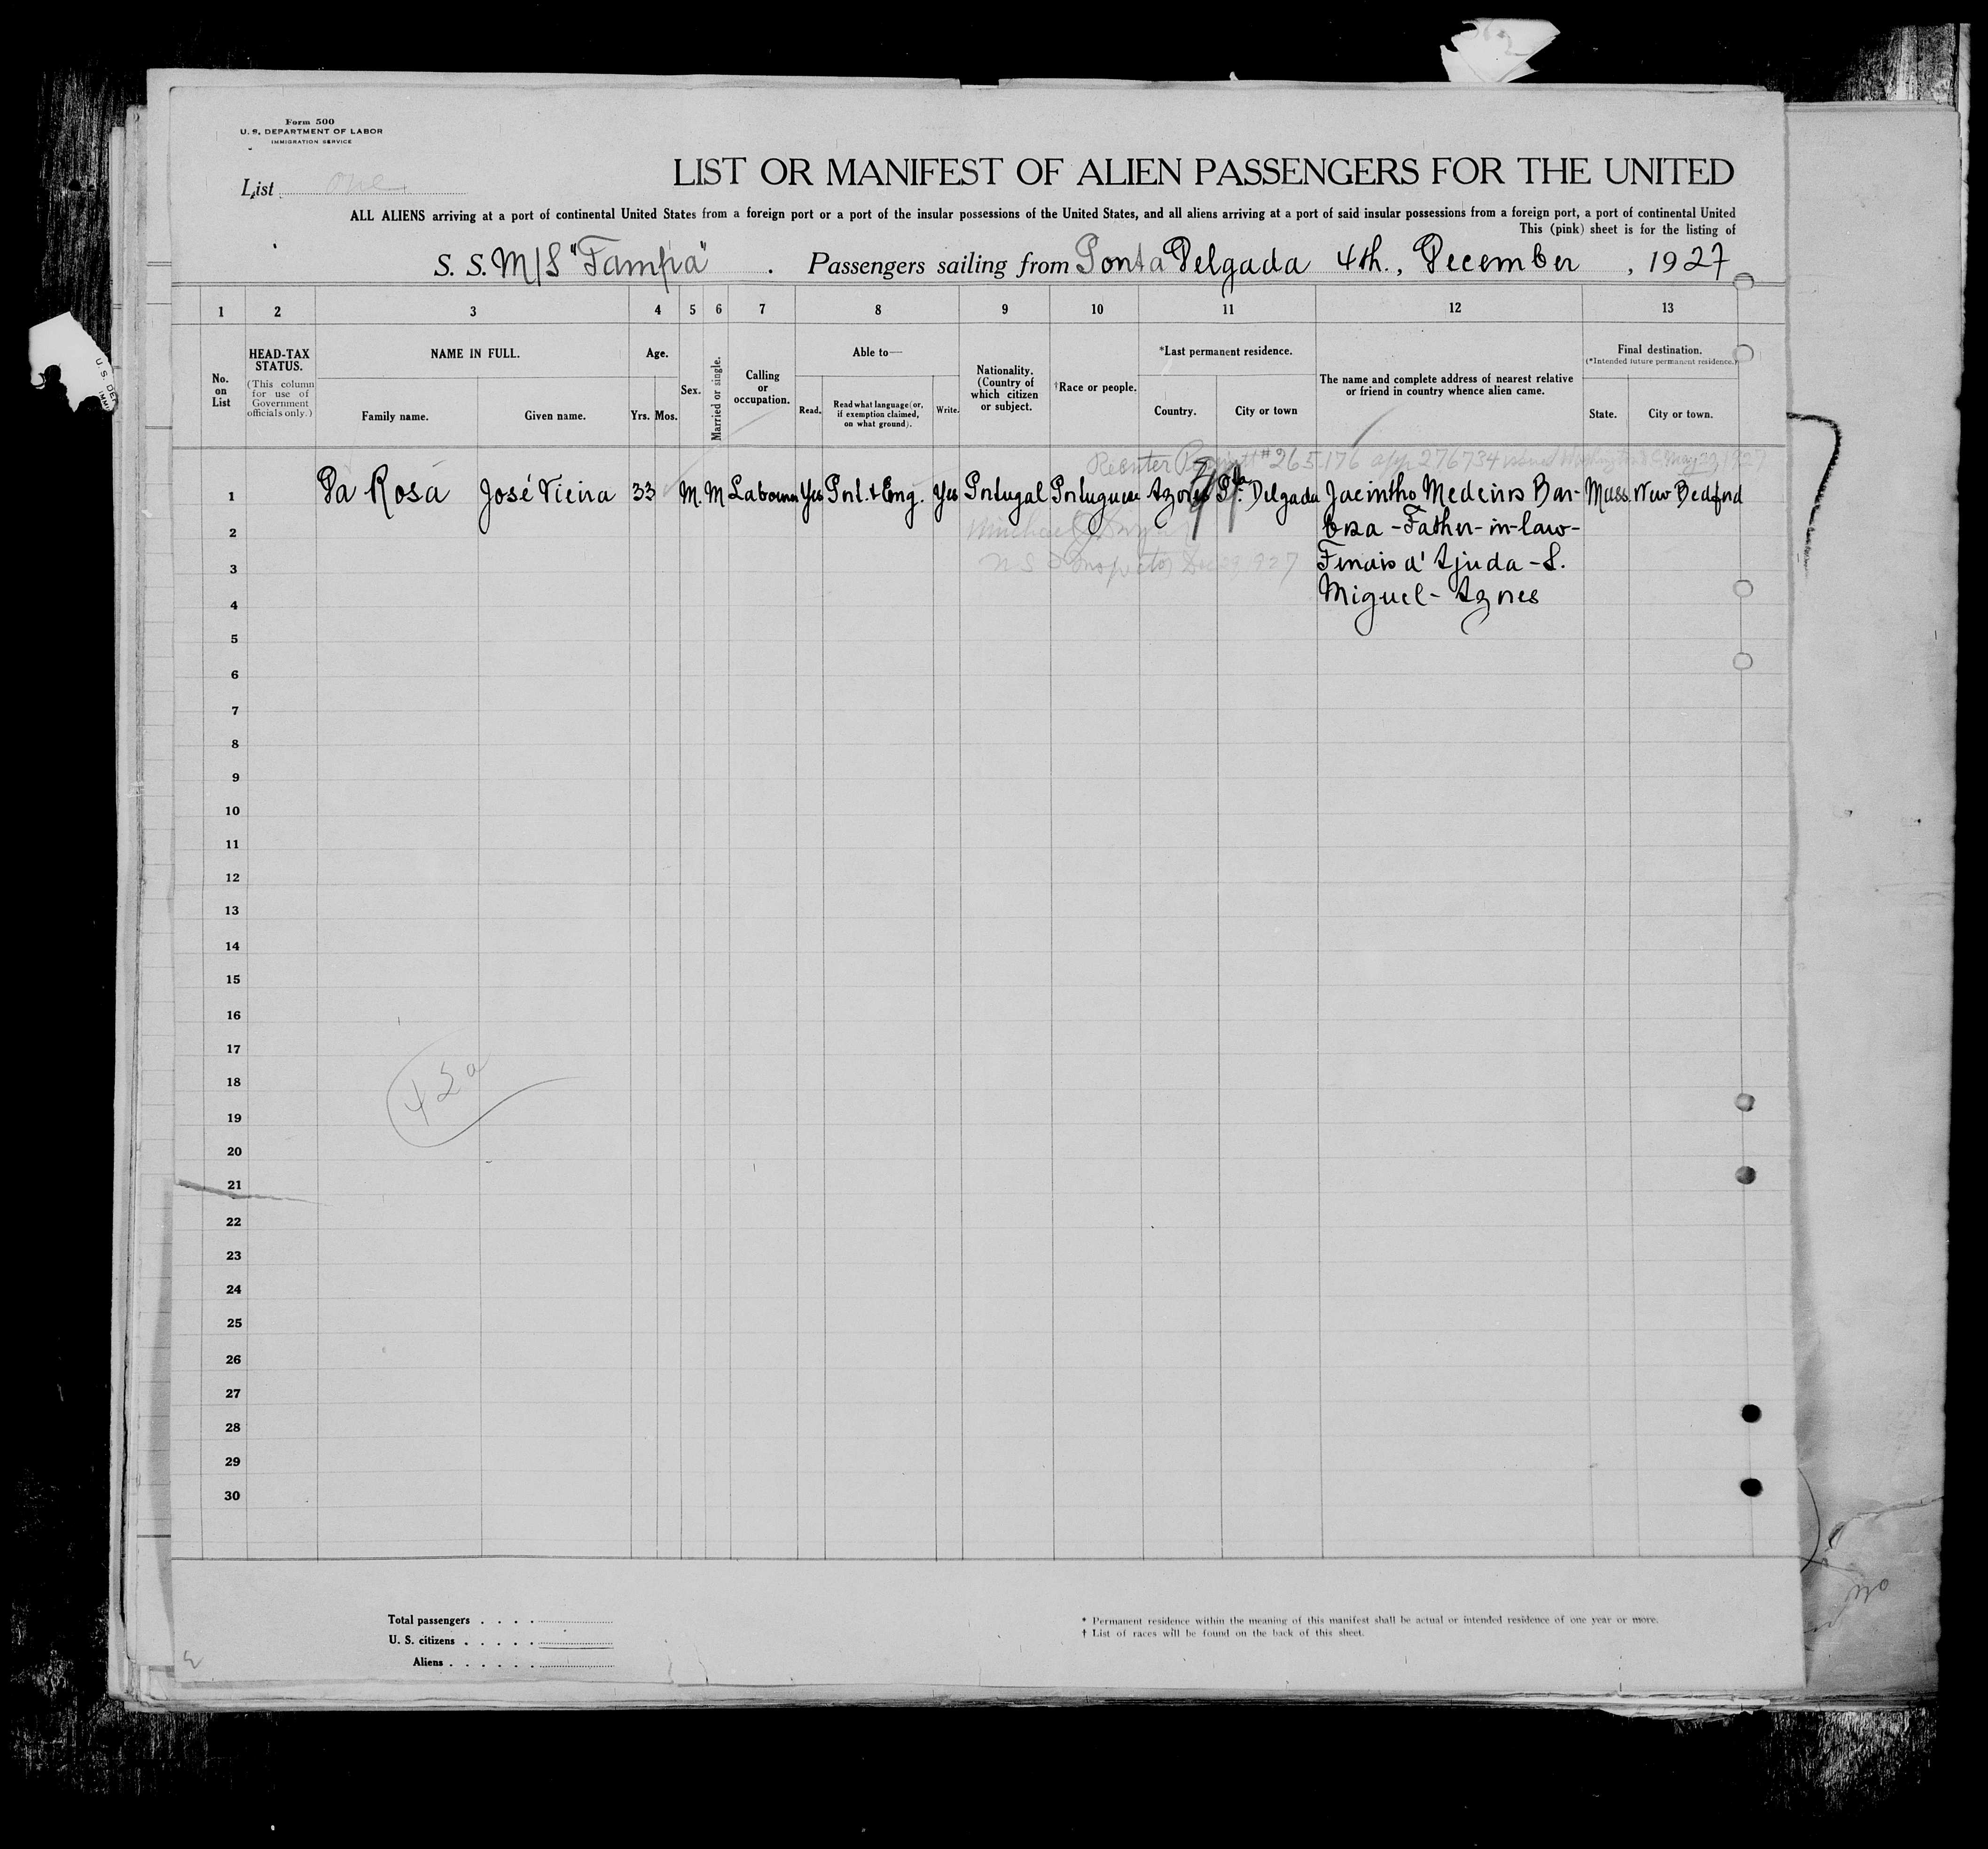 Form 500
U. S. DEPARTMENT OF LABOR
IMMIGRATION SERVICE
List one
LIST OR MANIFEST OF ALIEN PASSENGERS FOR THE UNITED
ALL ALIENS arriving at a port of continental United States from a foreign port or a port of the insular possessions of the United States, and all aliens arriving at a port of said insular possessions from a foreign port, a port of continental United
This (pink) sheet is for the listing of
S. S. M/S "Tampa". Passengers sailing from Ponta Delgada 4th., December, 1927
1 2 3 4 5 6 7 8 9 10 11 12 13
No. on List
HEAD-TAX STATUS.
(This column for use of Government officials only.)
NAME IN FULL.
Family name. Given name.
Age.
Yrs. Mos.
Sex.
Married or single.
Calling or occupation.
Able to—
Read. Read what language (or, if exemption claimed, on what ground). Write.
Nationality. (Country of which citizen or subject.
†Race or people.
*Last permanent residence.
Country. City or town
The name and complete address of nearest relative or friend in country whence alien came.
Final destination.
(*Intended future permanent residence.)
State. City or town.
Reenter Permit # 265176 app 276734 issued Washington May 1927
1 Da Rosa José Vieira 33 M. M Labourer Yes Port. + Eng. Yes Portugal Portuguese Azores Pta. Delgada Jacintho Medeiros Bar- Mass. New Bedford
2 bosa - Father-in-law-
3 Inspector 1927 Fenais d'Ajuda - S.
4 Miguel - Azores
5
6
7
8
9
10
11
12
13
14
15
16
17
18
19
20
21
22
23
24
25
26
27
28
29
30
42a
Total passengers . . . .
U. S. citizens . . . . .
Aliens . . . . . .
* Permanent residence within the meaning of this manifest shall be actual or intended residence of one year or more.
† List of races will be found on the back of this sheet.